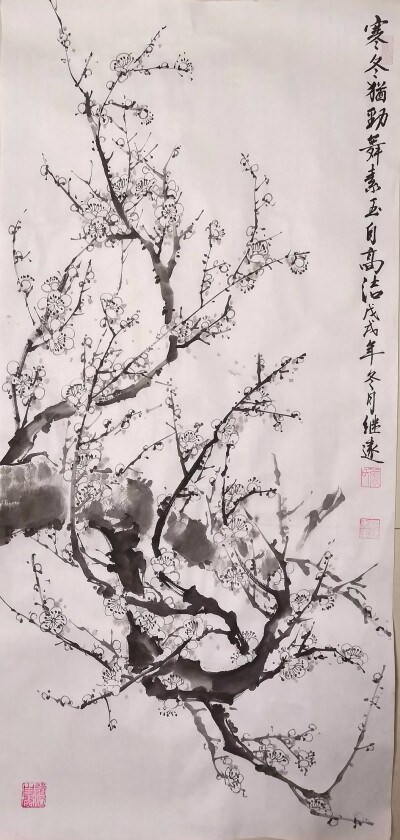 寒冬犹劲舞素玉自高洁戊戌年冬月继远